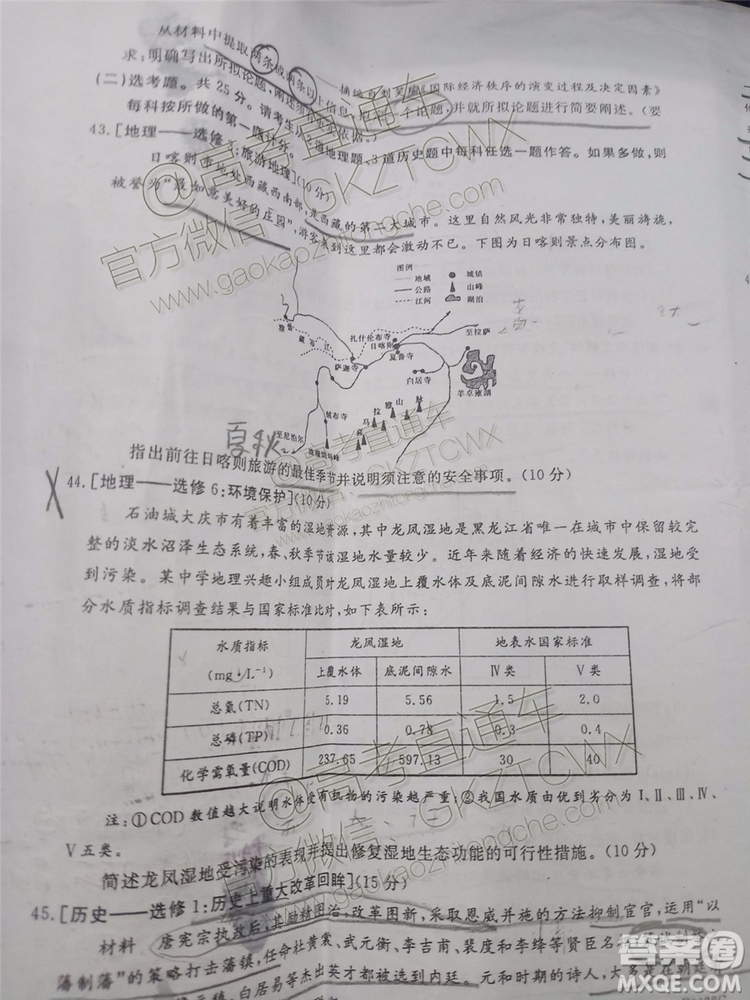 从材料中提取两条或两条以上信息，拟定一个论题，并就所拟论题进行简要阐述。（要
求：明确写出所拟论题，阐述须有史实依据。）
——摘编自刘芝编《国际经济秩序的演变过程及决定因素》
（二）选考题。共25分。请考生从2道地理题、3道历史题中每科任选一题作答。如果多做，则
每科按所做的第一题计分。
43.［地理——选修3：旅游地理］(10分)
日喀则市地处西藏西南部，是西藏的第二大城市。这里自然风光非常独特，美丽旖旎，
被誉为“最如意美好的庄园”，游客来到这里都会激动不已。下图为日喀则景点分布图。
图例
地域 城镇
公路 山峰
江河 湖泊
雅鲁
藏布江
扎什伦布寺
日喀则
至拉萨
夏鲁寺
萨迦寺
白居寺
羊卓雍湖
绒布寺
喜马拉雅山脉
至尼泊尔
珠穆朗玛峰
夏秋
指出前往日喀则旅游的最佳季节并说明须注意的安全事项。(10分)
44.［地理——选修6：环境保护］(10分)
石油城大庆市有着丰富的湿地资源，其中龙凤湿地是黑龙江省唯一在城市中保留较完
整的淡水沼泽生态系统，春、秋季节该湿地水量较少。近年来随着经济的快速发展，湿地
受到污染。某中学地理兴趣小组成员对龙凤湿地上覆水体及底泥间隙水进行取样调查，将部
分水质指标调查结果与国家标准比对，如下表所示：
水质指标 龙凤湿地 地表水国家标准
(mg·L⁻¹) 上覆水体 底泥间隙水 Ⅳ类 Ⅴ类
总氮(TN) 5.19 5.56 1.5 2.0
总磷(TP) 0.36 0.78 0.3 0.4
化学需氧量(COD) 237.65 597.13 30 40
注：①COD数值越大说明水体受有机物的污染越严重；②我国水质由优到劣分为Ⅰ、Ⅱ、Ⅲ、Ⅳ、
Ⅴ五类。
简述龙凤湿地受污染的表现并提出修复湿地生态功能的可行性措施。(10分)
45.［历史——选修1：历史上重大改革回眸］(15分)
材料 唐宪宗执政后，其励精图治，改革图新，采取恩威并施的方法抑制宦官，运用“以
藩制藩”的策略打击藩镇，任命杜黄裳、武元衡、李吉甫、裴度和李绛等贤臣名
白居易等杰出英才都被选到内廷。元和时期的诗人，大多是在朝廷
@高考直通车
官方微信：GKZTCWX
www.gaokaozhitongche.com
答案圈
MXQE.COM